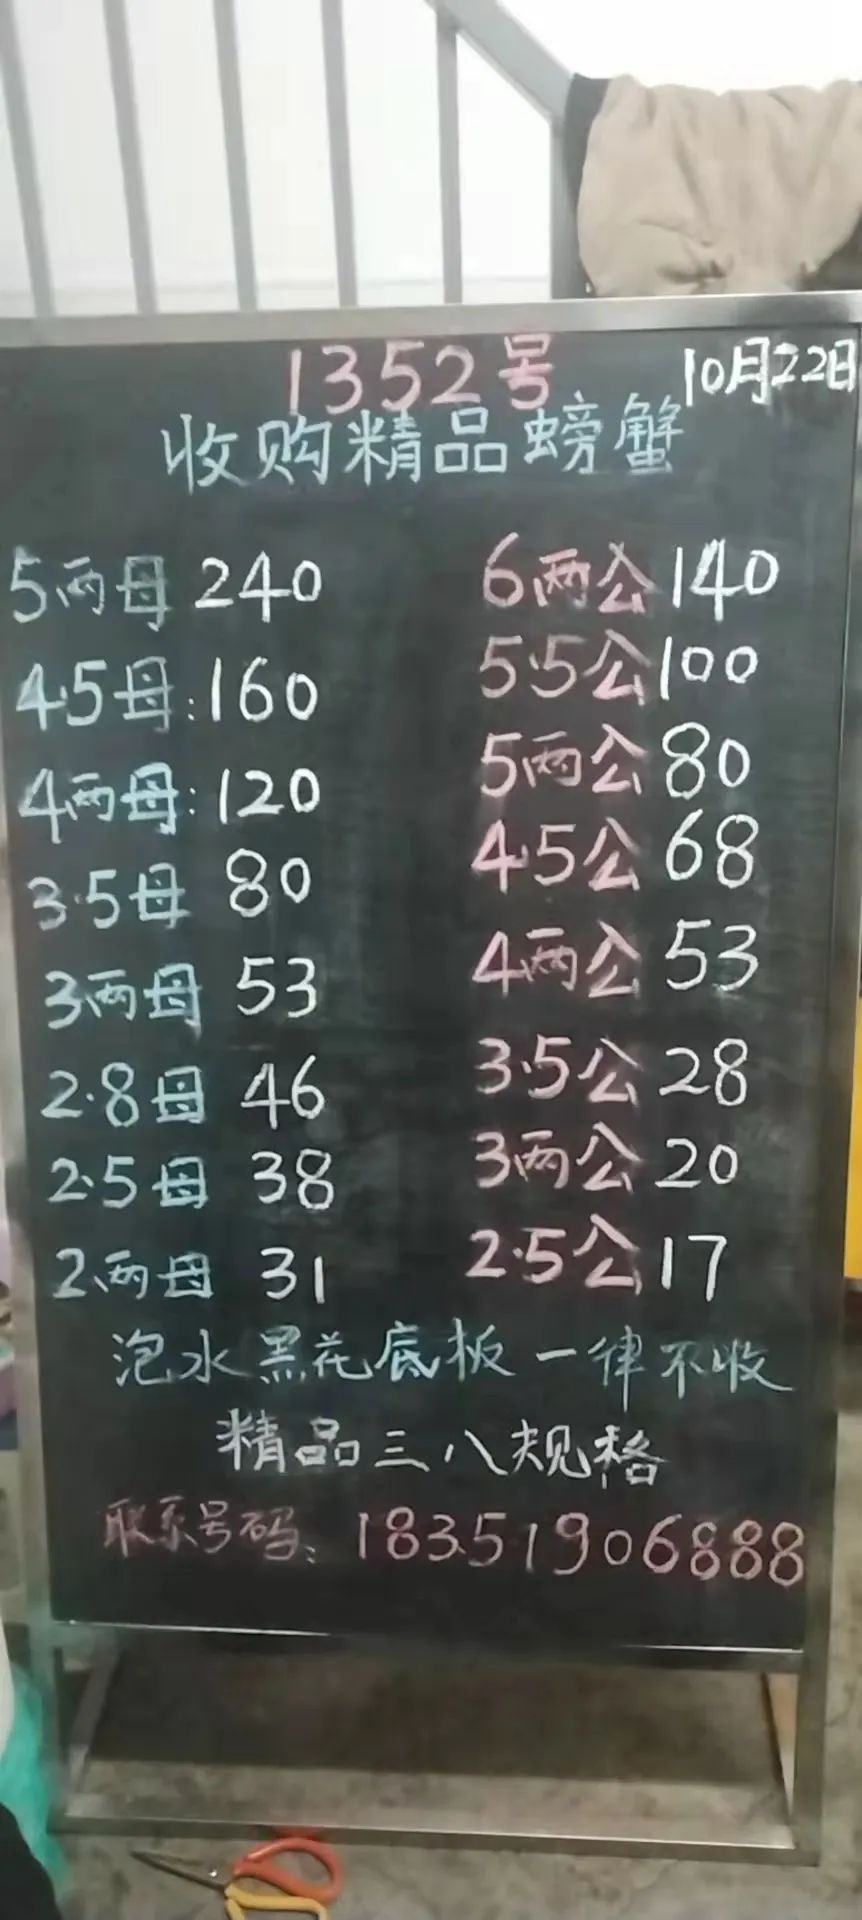 1352号 10月22日
收购精品螃蟹
5两母 240 6两公 140
4.5母:160 5.5公 100
4两母:120 5两公 80
3.5母 80 4.5公 68
3两母 53 4两公 53
2.8母 46 3.5公 28
2.5母 38 3两公 20
2两母 31 2.5公 17
泡水黑花底板一律不收
精品三八规格
联系号码:18351906888